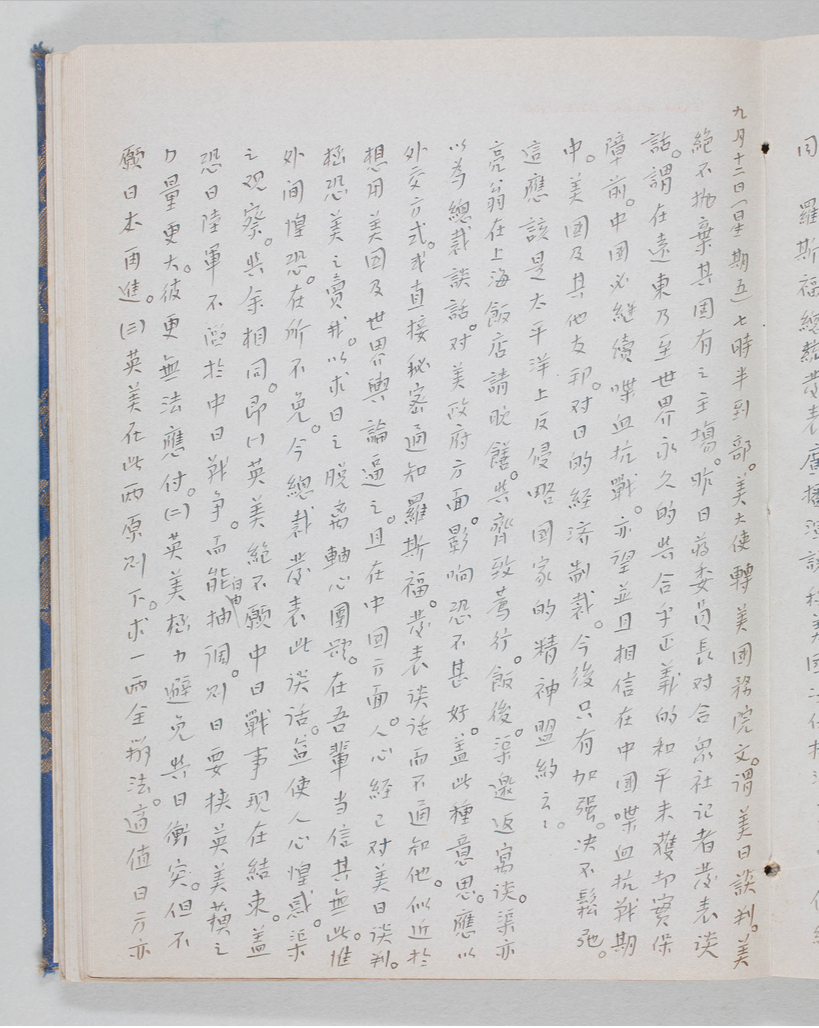 九月十二日(星期五)七時半到部。美大使轉美國務院文。謂美日談判。美
絕不拋棄其固有之主場。昨日蔣委員長对合眾社記者發表談
話。謂在遠東乃至世界永久的共合乎正義的和平未獲切實保
障前。中国必継續喋血抗戰。亦望並且相信在中国喋血抗戰期
中。美國及其他友邦。对日的経済制裁。今後只有加强。决不鬆弛。
這應該是太平洋上反侵略國家的精神盟約云云。
亮翁在上海飯店請晚饍。共齊致萬行。飯後。渠邀返寓谈。渠亦
以為總裁談話。对美政府方面影响恐不甚好。盖此種意思。應以
外交方式。或直接秘密通知羅斯福。發表谈话而不通知他。似近於
想用美国及世界輿論逼之。且在中国方面。人心経已对美日谈判。
極恐美之賣我。以求日之脱离軸心團體。在吾輩当信其無此。惟
外间惶恐。在所不免。今總裁發表此谈话。益使人心惶惑。渠
之观察。与余相同。即(一)英美絕不願中日戰事现在結束。盖
恐日陸軍不陷於中日戰争。而能自由抽调。则日要挟英美更之
力量更大。彼更無法應付。(二)英美極力避免與日衝突。但不
願日本再進。(三)英美在此两原则下。求一两全辦法。適值日方亦
同
羅斯福總統發表廣播演說